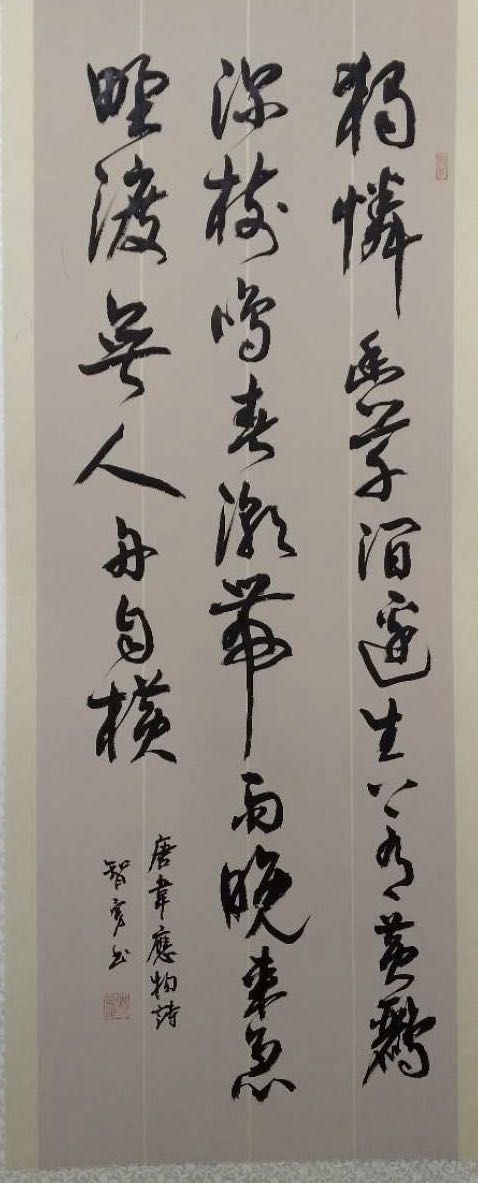 獨憐幽草澗邊生上有黃鸝
深樹鳴春潮帶雨晚來急
野渡無人舟自橫
唐韋應物詩
智書